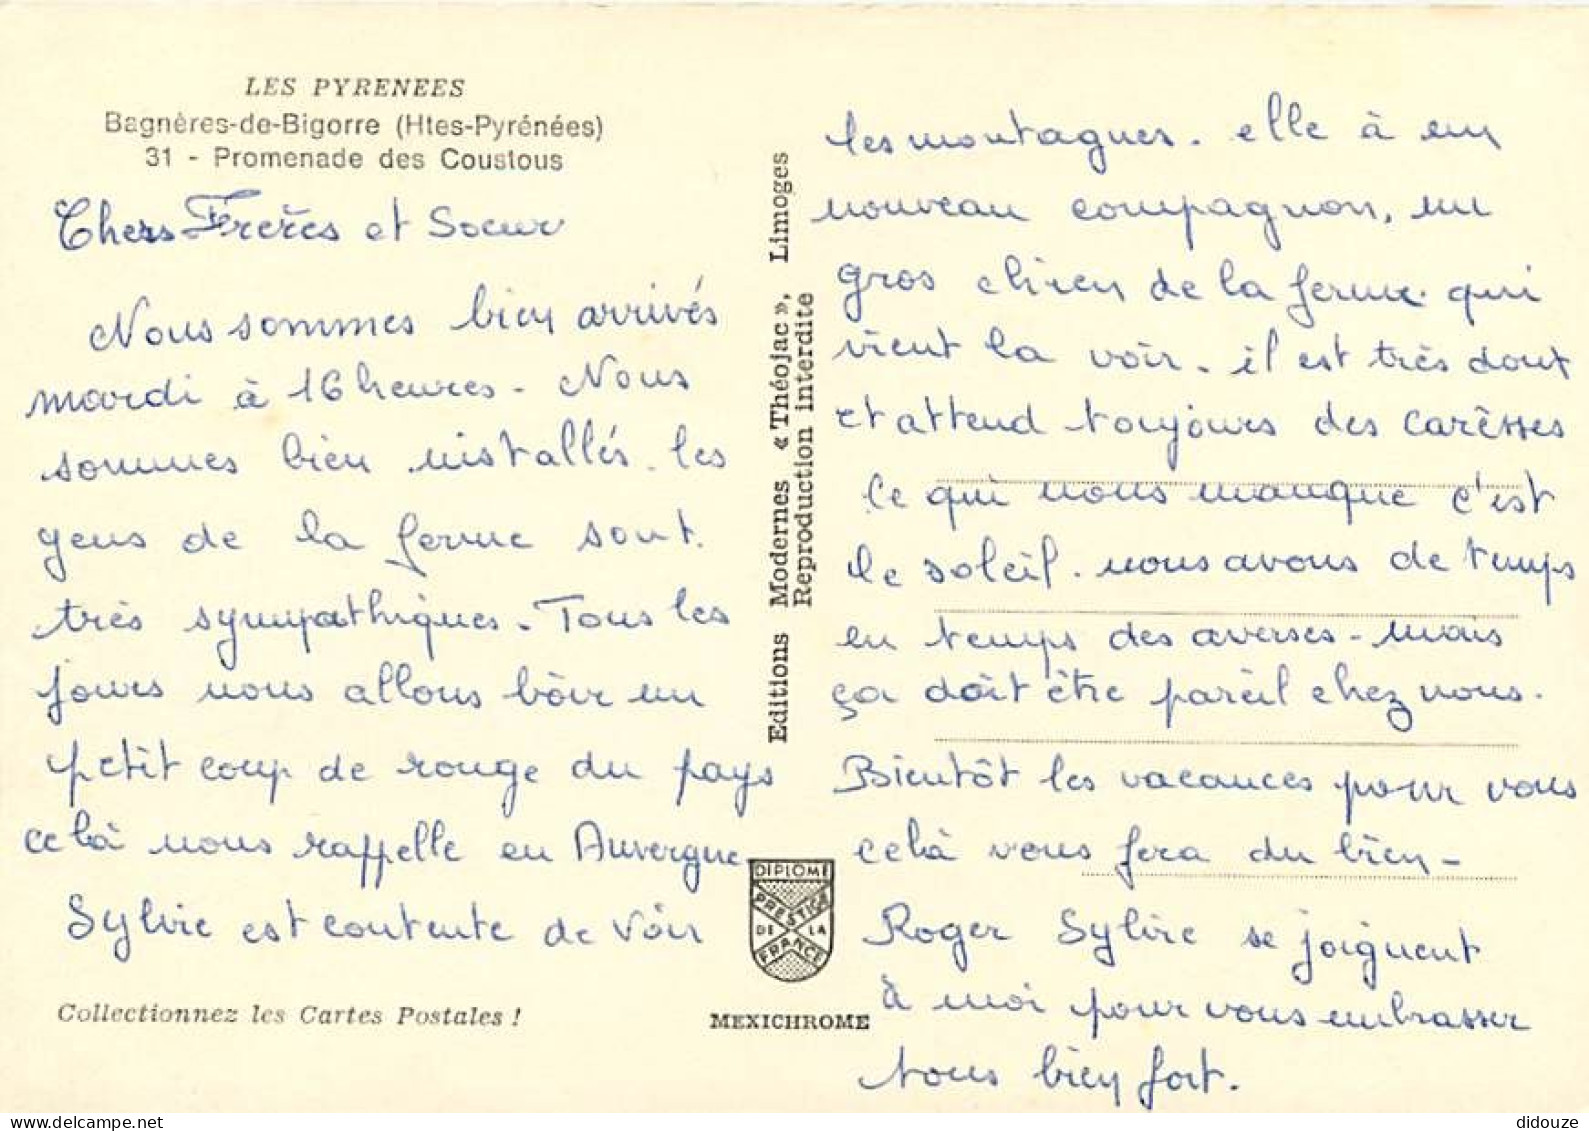 LES PYRENEES
Bagnères-de-Bigorre (Htes-Pyrénées)
31 - Promenade des Coustous
Chers Frères et Soeur
Nous sommes bien arrivés
mardi à 16 heures - Nous
sommes bien installés. les
gens de la ferme sont.
très sympathiques. Tous les
jours nous allons bôir un
petit coup de rouge du pays
celà nous rappelle en Auvergne
Sylvie est contente de vôir
Collectionnez les Cartes Postales !
Editions Modernes « Théojac », Limoges
Reproduction interdite
DIPLOME
PRESTIGE
DE LA
FRANCE
MEXICHROME
les montagnes. elle à un
nouveau compagnon, un
gros chien de la ferme. qui
vient la voir. il est très dout
et attend toujours des carèsses
Ce qui nous manque c'est
le soleil. nous avons de temps
en temps des averses - mais
ça doit être pareil chez nous.
Bientôt les vacances pour vous
celà vous fera du bien -
Roger Sylvie se joignent
à moi pour vous embrasser
tous bien fort.
delcampe.net
didouze